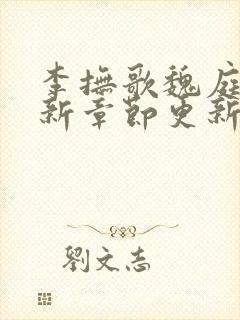 李撫歌魏庭
新章節更新
劉文志